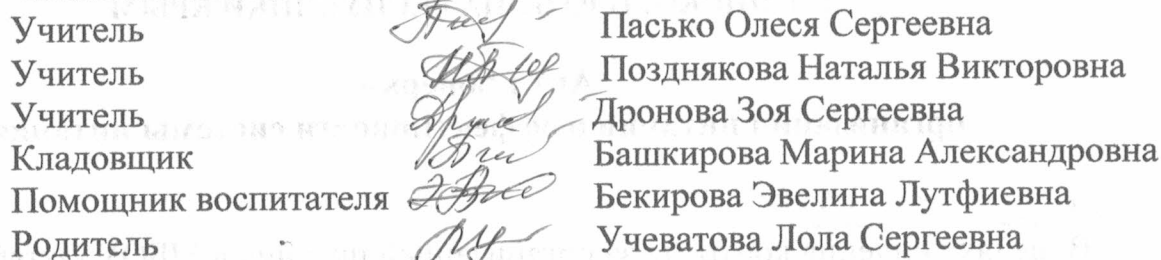 Учитель Пасько Олеся Сергеевна
Учитель Позднякова Наталья Викторовна
Учитель Дронова Зоя Сергеевна
Кладовщик Башкирова Марина Александровна
Помощник воспитателя Бекирова Эвелина Лутфиевна
Родитель Учеватова Лола Сергеевна